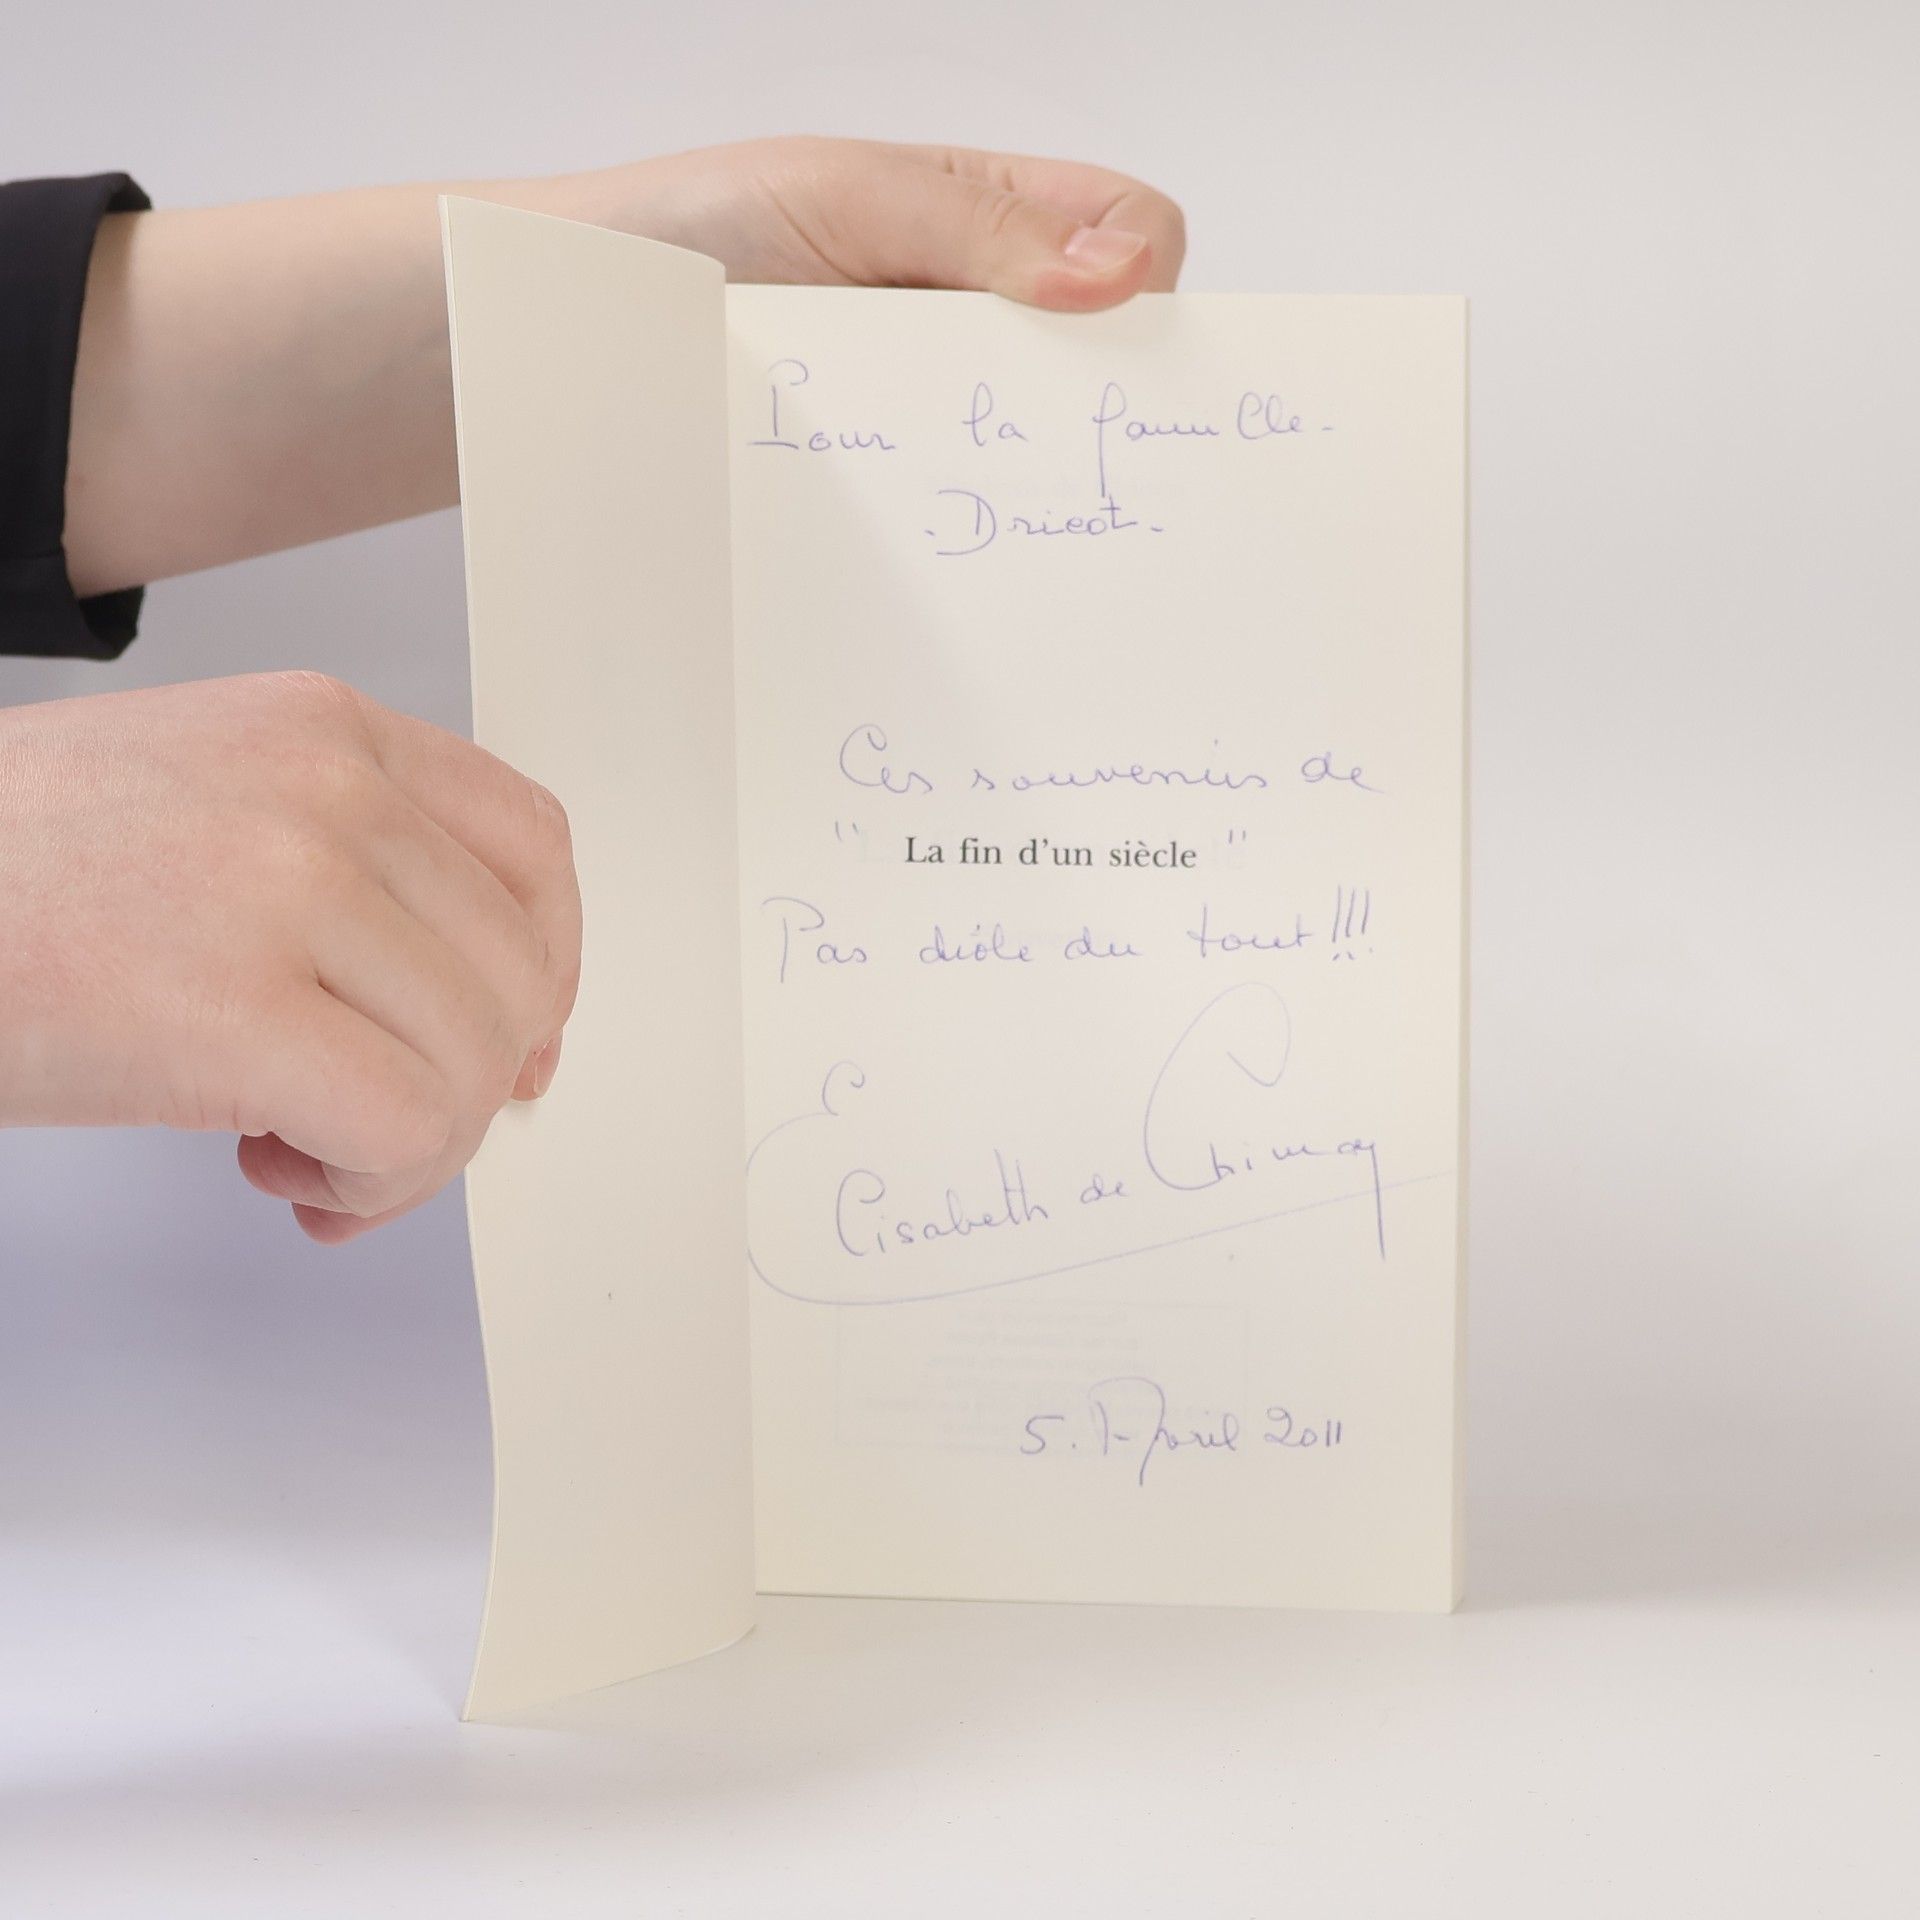 Pour la famille -
- Dricot -
Ces souvenirs de
" La fin d'un siècle "
Pas drôle du tout !!!
E
Elisabeth de Chimay
5. Avril 2011